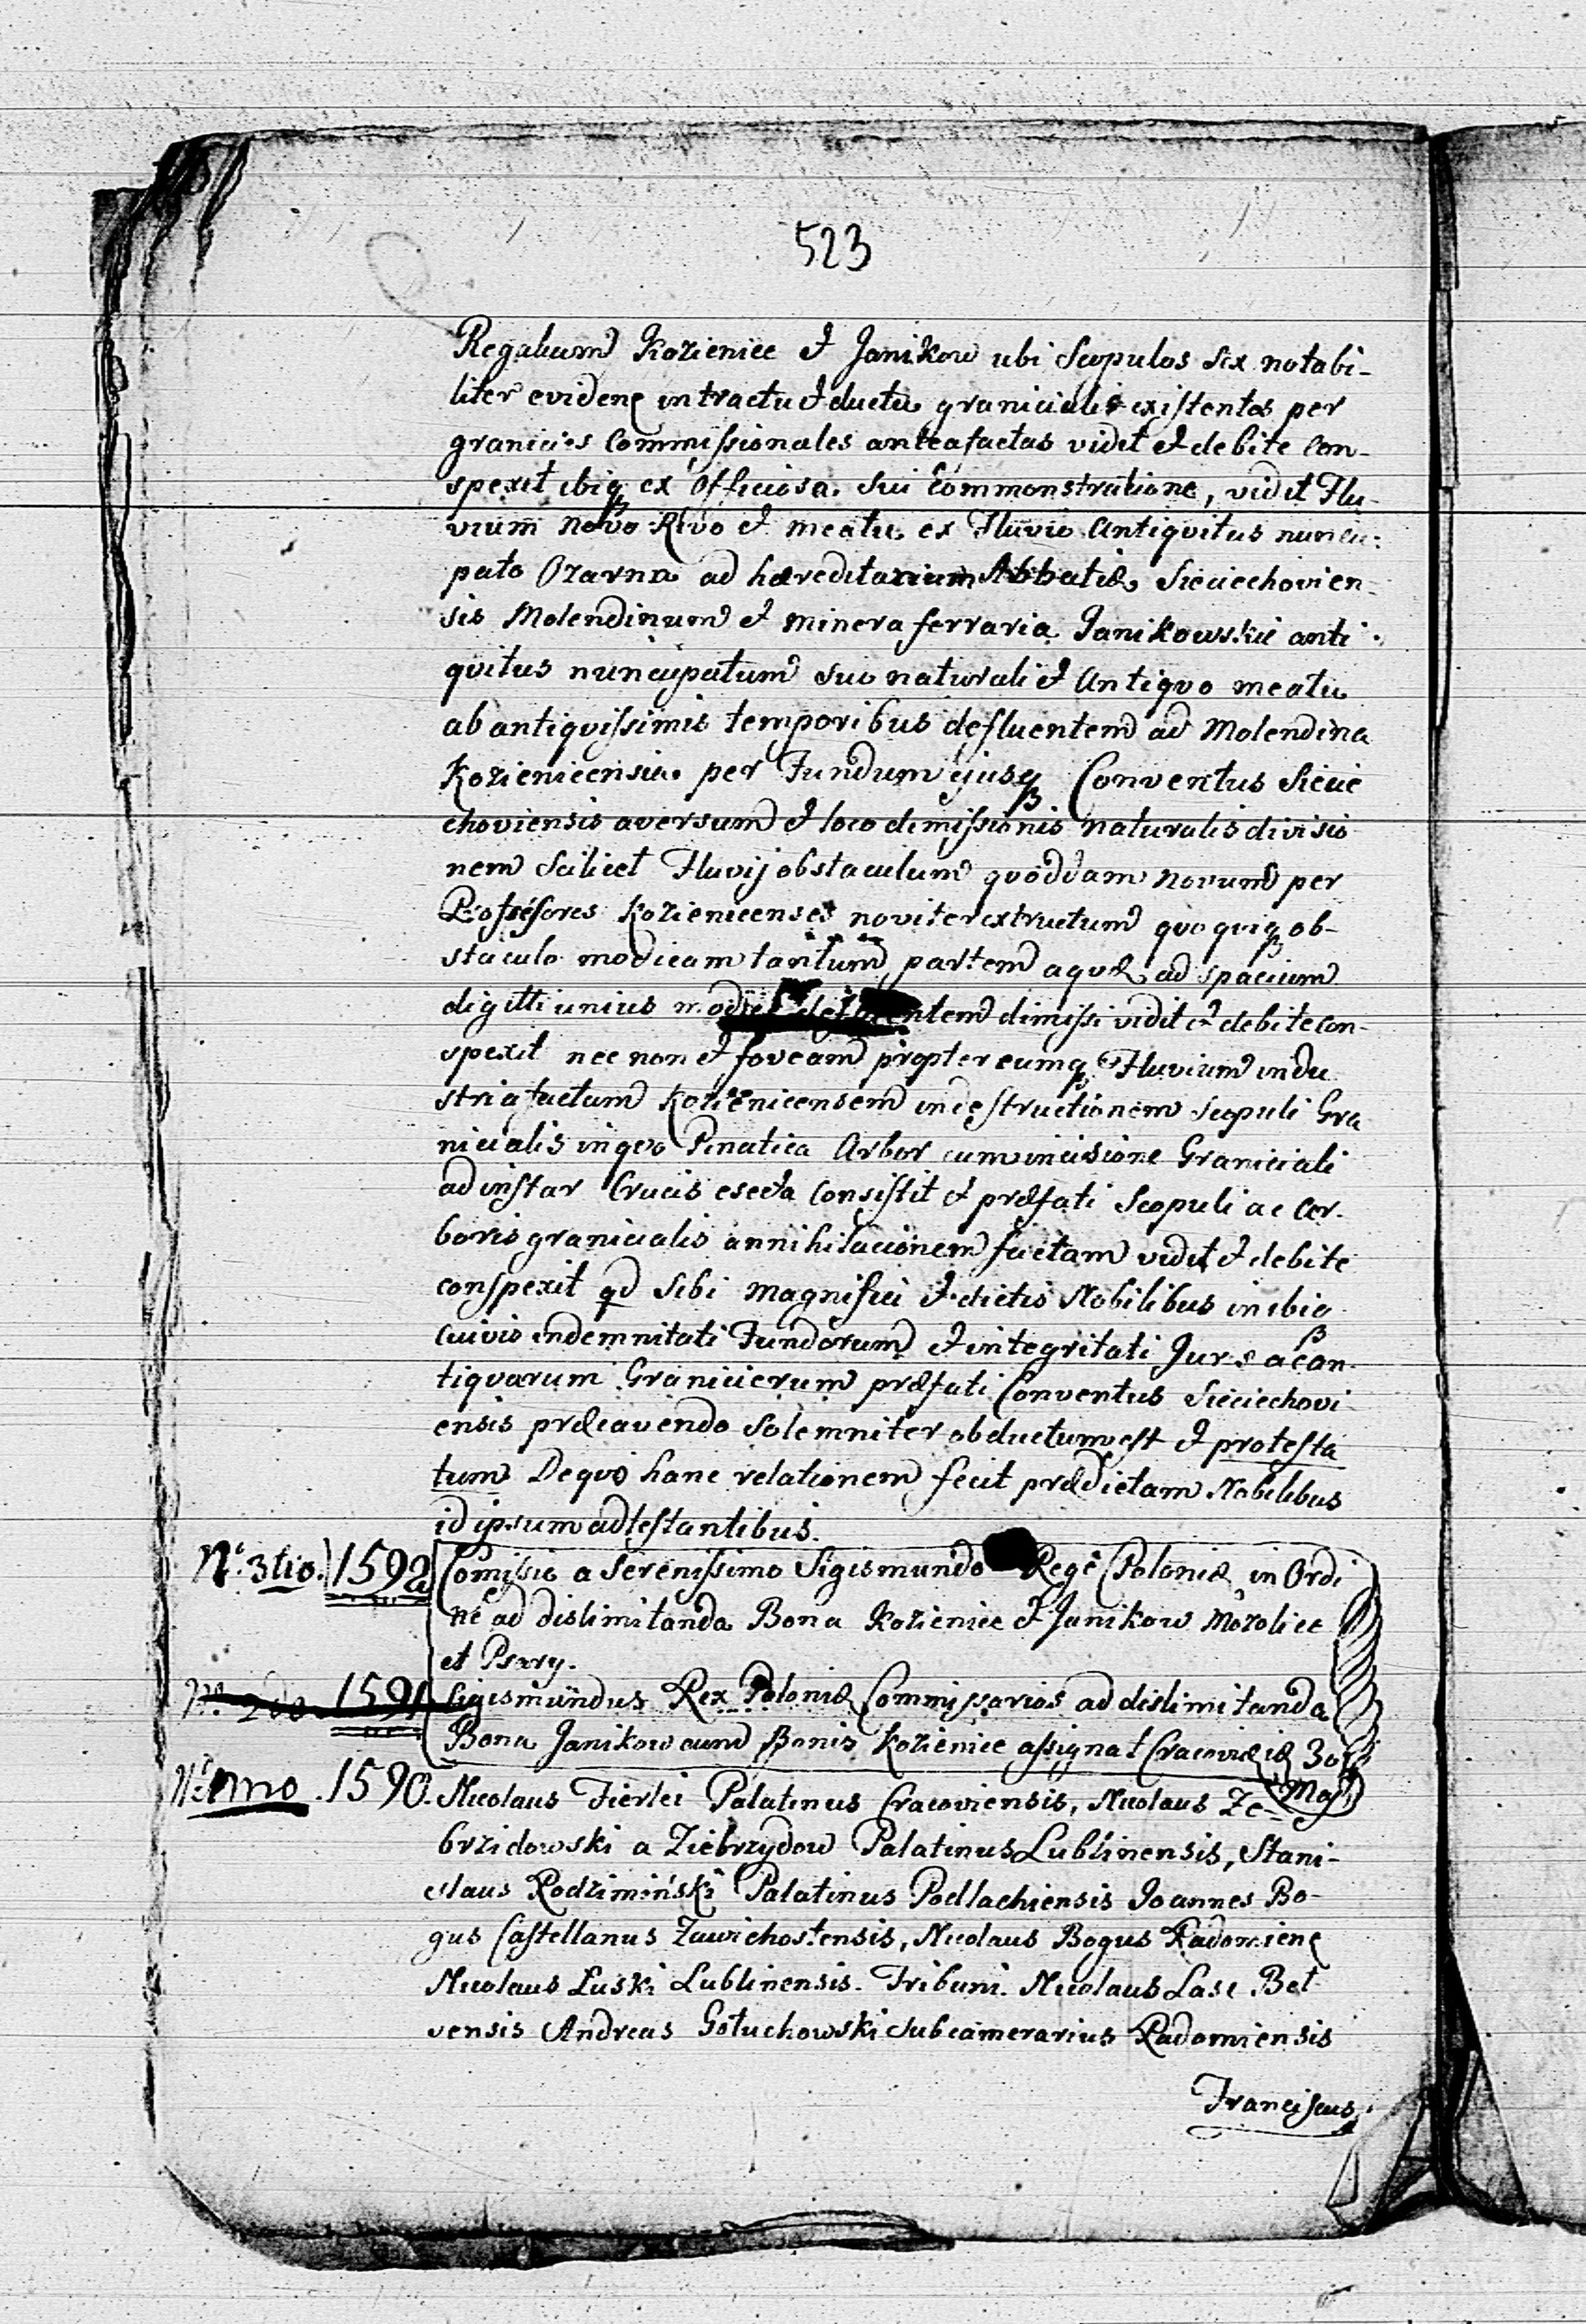 523
Regalium Kozienice et Janikow ubi Scopulos sex notabi-
liter evidenꝫ in tractu et ductu graniciali existentes per
granicies Commissionales antea factas vidit et debite con-
spexit ibiqꝫ ex officiosa sui commonstratione, vidit Flu-
vium novo Rivo et meatu ex Fluvio Antiqvitus nuncu-
pato Ozarna ad hæreditarium Abbatiæ Sieciechovien-
sis Molendinum et minera ferraria Janikowskie anti-
qvitus nuncupatum suo naturali et Antiqvo meatu
ab antiqvissimis temporibus defluentem ad Molendina
Kozienicensia per Fundum ejusqꝫ Conventus Siecie
choviensis aversum et loco dimissionis naturalis divisio
nem scilicet Fluvij obstaculum qvoddam novum per
Possessores Kozienicenses noviter extructum qvo qviqꝫ ob-
staculo modicam tantum partem aqvæ ad spacium
digitti unius dimissi vidit et debite con-
spexit nec non et foveam propter eumqꝫ Fluvium indu
stria factam Kozienicensem in destructionem Scopuli Gra
nicialis in qvo Pinatica Arbor cum incisione Graniciali
ad instar Crucis esecta consistit et præfati Scopuli ac ar-
boris granicialis annihilacionem factam vidit et debite
conspexit qd sibi Magnifici et dictis Nobilibus in ibiqꝫ
cuivis indemnitati Fundorum et integritati Juris ac an-
tiqvarum Granicierum præfati Conventus Sieciechovi-
ensis præcavendo Solemniter obductum est et protesta
tum De qvo hanc relationem fecit prædictam Nobilibus
id ipsum adtestantibus.
No. 3tio. 1592 Comissio a Serenissimo Sigismundo Rege Poloniæ in Ordi
ne ad dislimitanda Bona Kozienice et Janikow Mozolice
et Psary.
No. 2do. 1591 Sigismundus Rex Poloniæ Commissarios ad dislimitanda
Bona Janikow cum Bonis Kozienice assignat Cracoviæ 30
Maji
No. 1mo. 1590. Nicolaus Fierlei Palatinus Cracoviensis, Nicolaus Ze-
brzidowski a Ziebrzydow Palatinus Lublinensis, Stani-
slaus Rodzimiński Palatinus Podlachiensis Joannes Bo-
gus Castellanus Zawichostensis, Nicolaus Bogus Radomienꝫ
Nicolaus Łuski Lublinensis. Tribuni. Nicolaus Lasc Bel
sensis Andreas Gołuchowski Subcamerarius Radomiensis
Franciscus